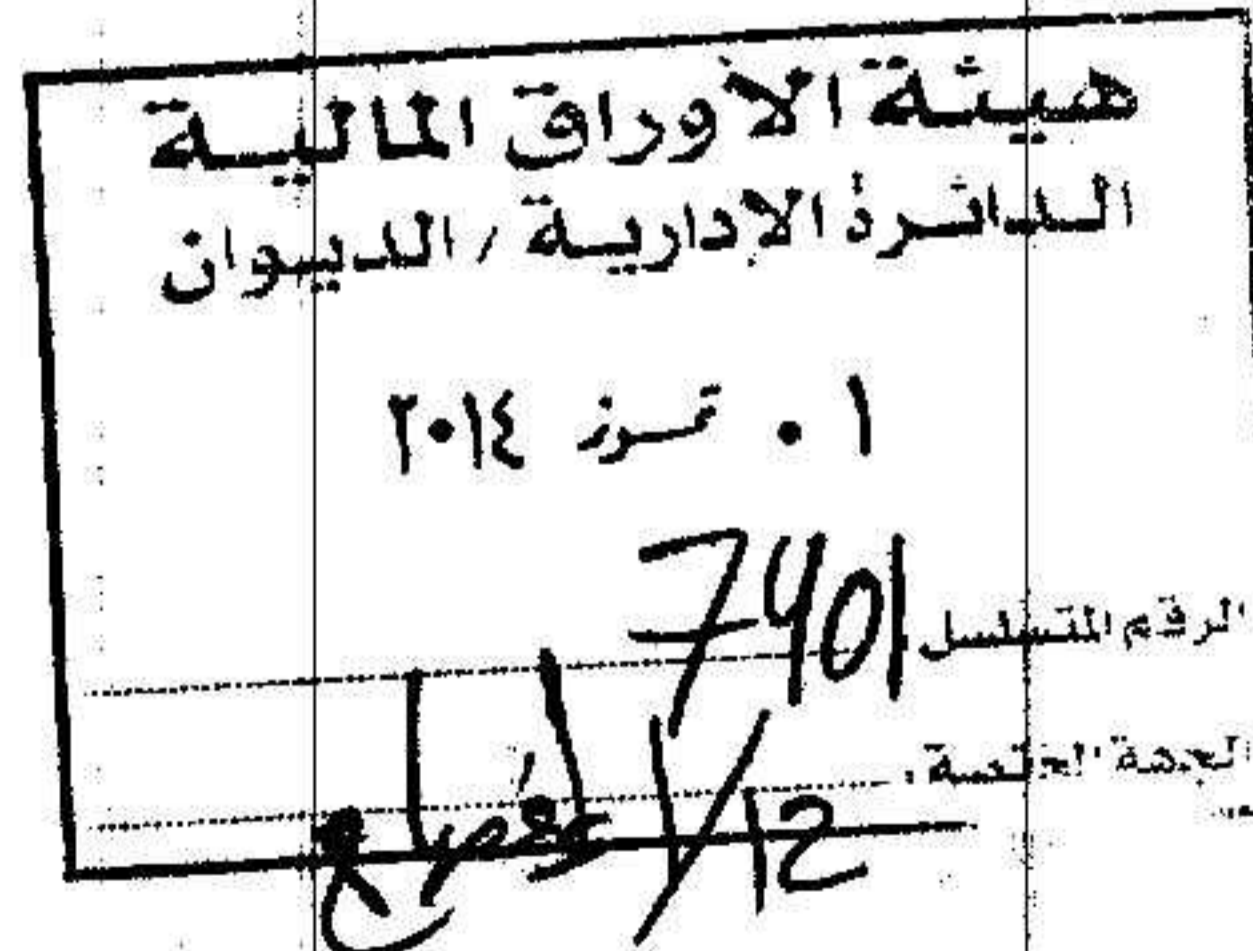 هيئة الأوراق المالية
الدائرة الإدارية / الديوان
٠١ تموز ٢٠١٤
الرقم المتسلسل 7401
الجهة المختصة
12/1 الإفصاح